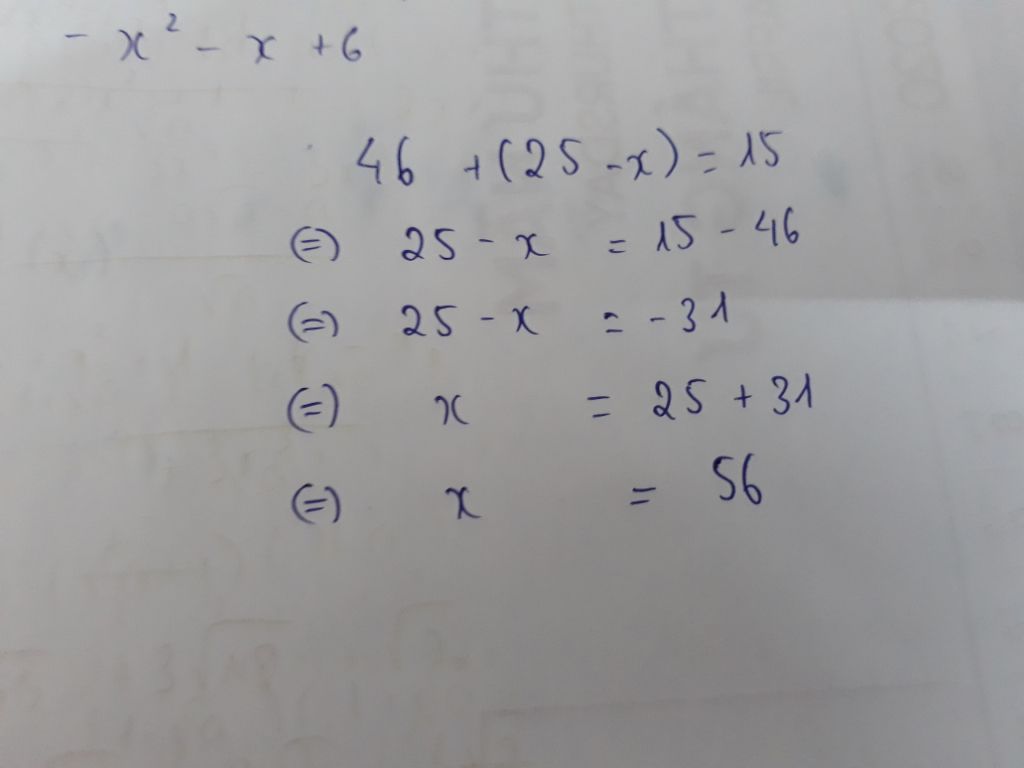 - x² - x + 6
46 + (25 - x) = 15
(=) 25 - x = 15 - 46
(=) 25 - x = - 31
(=) x = 25 + 31
(=) x = 56